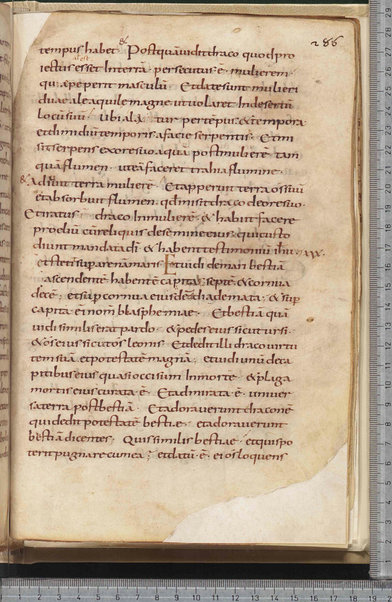 286
tempus habet & Postquā vidit draco quod pro
iectus esset Interrā persecutus ē mulierem
quae peperit masculū Et datae sunt mulieri
duae alae aquile magne ut volaret In desertū
locū suū Ubi alitur per tēpus & tempora
et dimidiū temporis a facie serpentis Et m
sit serpens ex ore suo aquā post mulierē tam
quā flumen ut eā faceret trahi a flumine
& Adiuvit terra mulierē Et apperuit terra os suū
et absorbuit flumen qd misit draco de ore suo
Et iratus draco In mulierē & habiit facere
proeliū cū reliquis de semine eius qui custo
diunt mandata dī & habent testimoniū ihu
et stetit supra renā maris Et vidi de mari bestiā
ascendentē habentē capita septē & cornua
decē et sup cornua eius decē diademata & sup
capita ei nomē blasphemiae Et bestiā quā
vidi similis erat pardo & pedes eius sicut ursi
& os eius sicut os leonis Et dedit illi draco virtu
tem suā et potestatē magnā et vidi unū de ca
pitibus eius quasi occisum In morte & plaga
mortis eius curata ē Et admirata ē univer
sa terra post bestiā Et adoraverunt dracone
qui dedit potestatē bestiae et adoraverunt
bestiā dicentes Quis similis bestiae et quis po
terit pugnare cum ea et datū ē ei os loquens